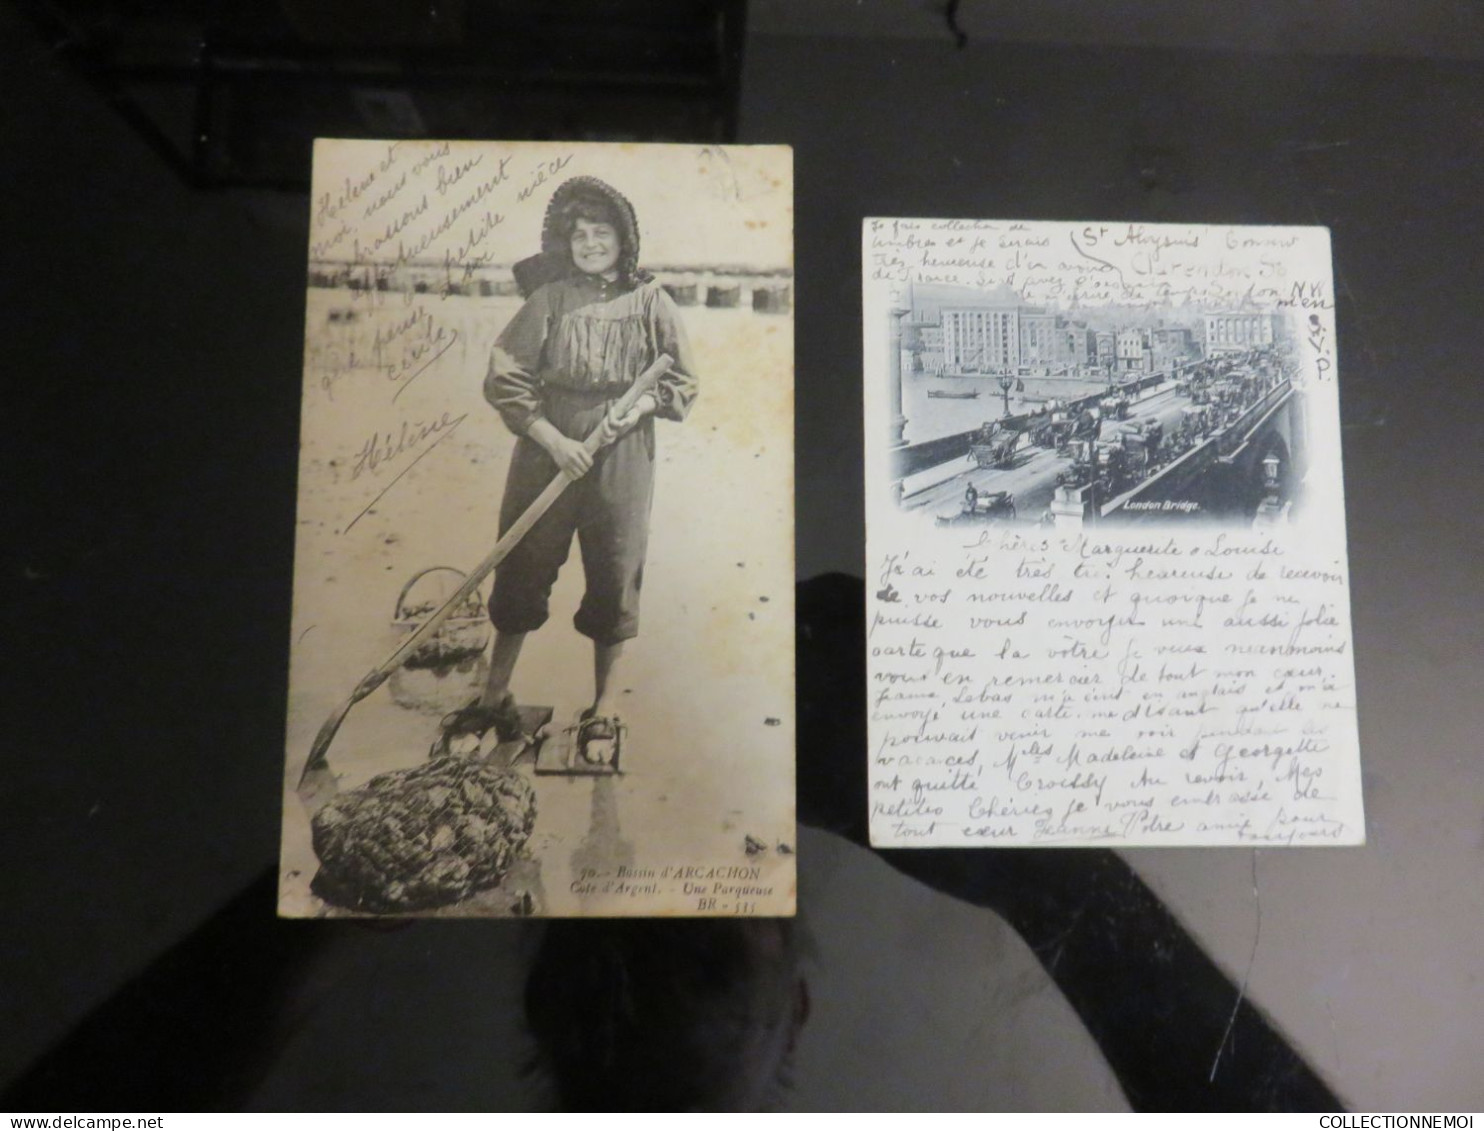 Hélène et
moi, nous vous
embrassons bien
affectueusement
petite nièce
pense
toi
Cécile
Hélène
90. - Bassin d'ARCACHON
Côte d'Argent. - Une Parqueuse
BR - 535
Je fais collection de
timbres et je serais
très heureuse d'en avoir
de France. Si
St Aloysius' Convent
Clarendon Sq
London N W
R.V.P.
London Bridge.
Chères Marguerite & Louise
J'ai été très très heureuse de recevoir
de vos nouvelles et quoique je ne
puisse vous envoyer une aussi jolie
carte que la vôtre je veux néanmoins
vous en remercier de tout mon cœur.
Lebas m'a écrit en anglais et m'a
envoyé une carte me disant qu'elle ne
pouvait venir me voir pendant les
vacances, Mlles Madeleine et Georgette
ont quitté Croissy Au revoir, Mes
petites Chéries je vous embrasse de
tout cœur Jeanne Votre amie pour
toujours
COLLECTIONNEMOI